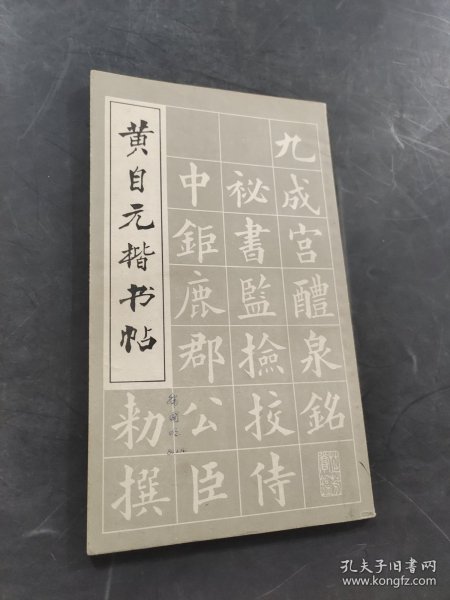 黄自元楷书帖
九成宮醴泉銘
祕書監撿挍侍
中鉅鹿郡公臣
勑撰
孔夫子旧书网
www.kongfz.com